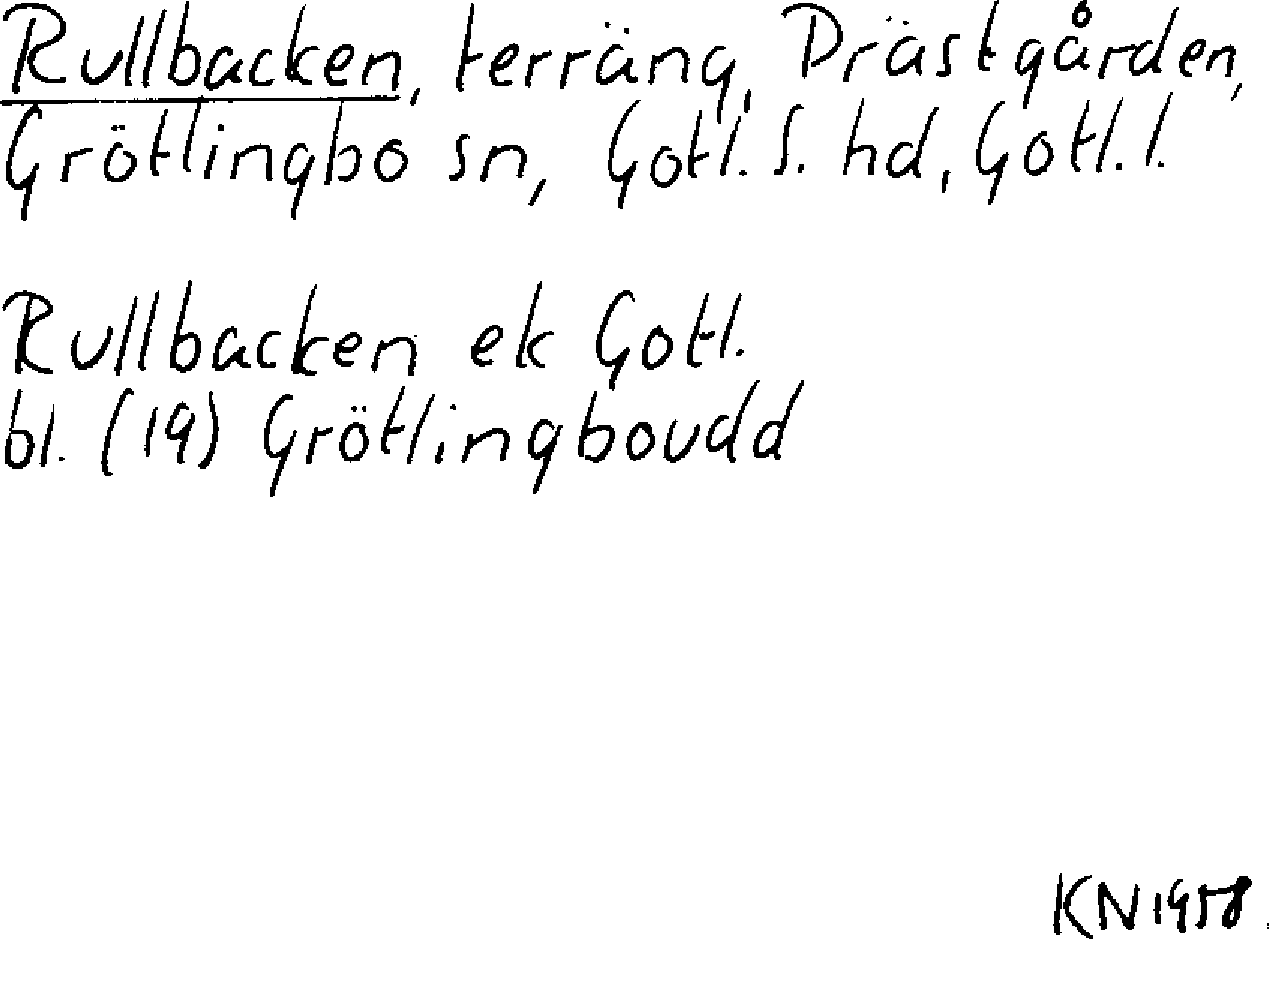 Rullbacken, terräng, Prästgården,
Grötlingbo sn, Gotl. S. hd, Gotl. l.
Rullbacken ek Gotl.
bl. (19) Grötlingboudd
KN 1958.